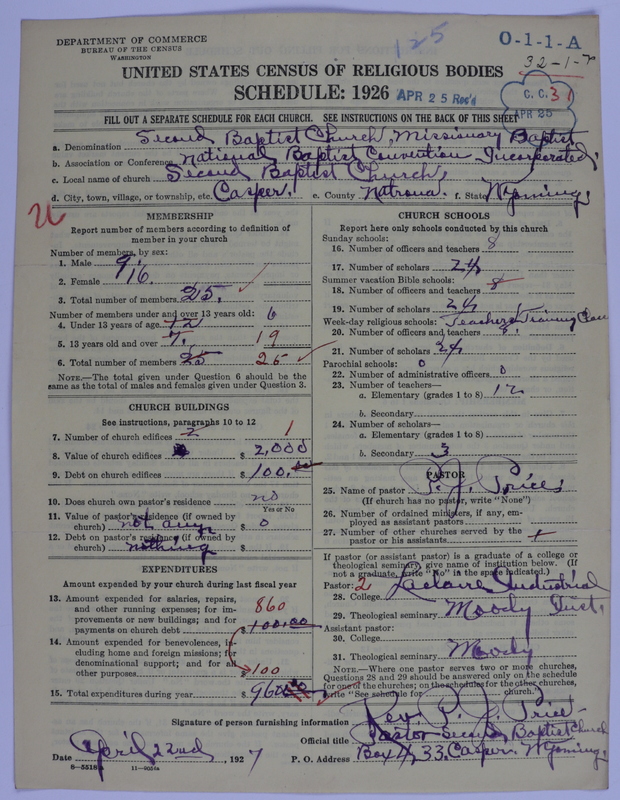 DEPARTMENT OF COMMERCE
BUREAU OF THE CENSUS
WASHINGTON
125
O-1-1-A
32-1-
UNITED STATES CENSUS OF RELIGIOUS BODIES
SCHEDULE: 1926
APR 25 Rec'd
C. C. 31
APR 25
FILL OUT A SEPARATE SCHEDULE FOR EACH CHURCH. SEE INSTRUCTIONS ON THE BACK OF THIS SHEET
a. Denomination Second Baptist Church, Missionary Baptist
b. Association or Conference National Baptist Convention Incorporated,
c. Local name of church Second Baptist Church,
d. City, town, village, or township, etc. Casper. e. County Natrona. f. State Wyoming.
MEMBERSHIP
Report number of members according to definition of member in your church
Number of members, by sex:
1. Male 9
2. Female 16.
3. Total number of members 25.
Number of members under and over 13 years old: 6
4. Under 13 years of age 12
5. 13 years old and over 7. 19
6. Total number of members 25 25
NOTE.—The total given under Question 6 should be the same as the total of males and females given under Question 3.
CHURCH BUILDINGS
See instructions, paragraphs 10 to 12
7. Number of church edifices 2 1
8. Value of church edifices $ 2,000
9. Debt on church edifices $ 100.00
10. Does church own pastor's residence no
Yes or No
11. Value of pastor's residence (if owned by church) not any $ 0
12. Debt on pastor's residence (if owned by church) nothing $
EXPENDITURES
Amount expended by your church during last fiscal year
13. Amount expended for salaries, repairs, and other running expenses; for improvements or new buildings; and for payments on church debt 860 $ 100.00
14. Amount expended for benevolences, including home and foreign missions; for denominational support; and for all other purposes $ 100
15. Total expenditures during year $ 960.00
CHURCH SCHOOLS
Report here only schools conducted by this church
Sunday schools:
16. Number of officers and teachers 8
17. Number of scholars 24
Summer vacation Bible schools:
18. Number of officers and teachers 8
19. Number of scholars 24
Week-day religious schools: Teachers Training Class
20. Number of officers and teachers 8.
21. Number of scholars 24
Parochial schools: 0
22. Number of administrative officers 0
23. Number of teachers—
a. Elementary (grades 1 to 8) 12
b. Secondary
24. Number of scholars—
a. Elementary (grades 1 to 8)
b. Secondary 3
PASTOR
25. Name of pastor P. J. Price
(If church has no pastor, write "None")
26. Number of ordained ministers, if any, employed as assistant pastors
27. Number of other churches served by the pastor or his assistants 1
If pastor (or assistant pastor) is a graduate of a college or theological seminary, give name of institution below. (If not a graduate, write "No" in the space indicated.)
Pastor: 2
28. College Industrial
29. Theological seminary Moody Inst.
Assistant pastor:
30. College
31. Theological seminary Moody
NOTE.—Where one pastor serves two or more churches, Questions 28 and 29 should be answered only on the schedule for one of the churches; on the schedules for the other churches, write "See schedule for church."
Signature of person furnishing information Rev. P. J. Price
Official title Pastor Second Baptist Church
Date April 22nd, 1927 P. O. Address Box 1, 33. Casper. Wyoming.
8—5518a 11—9054a